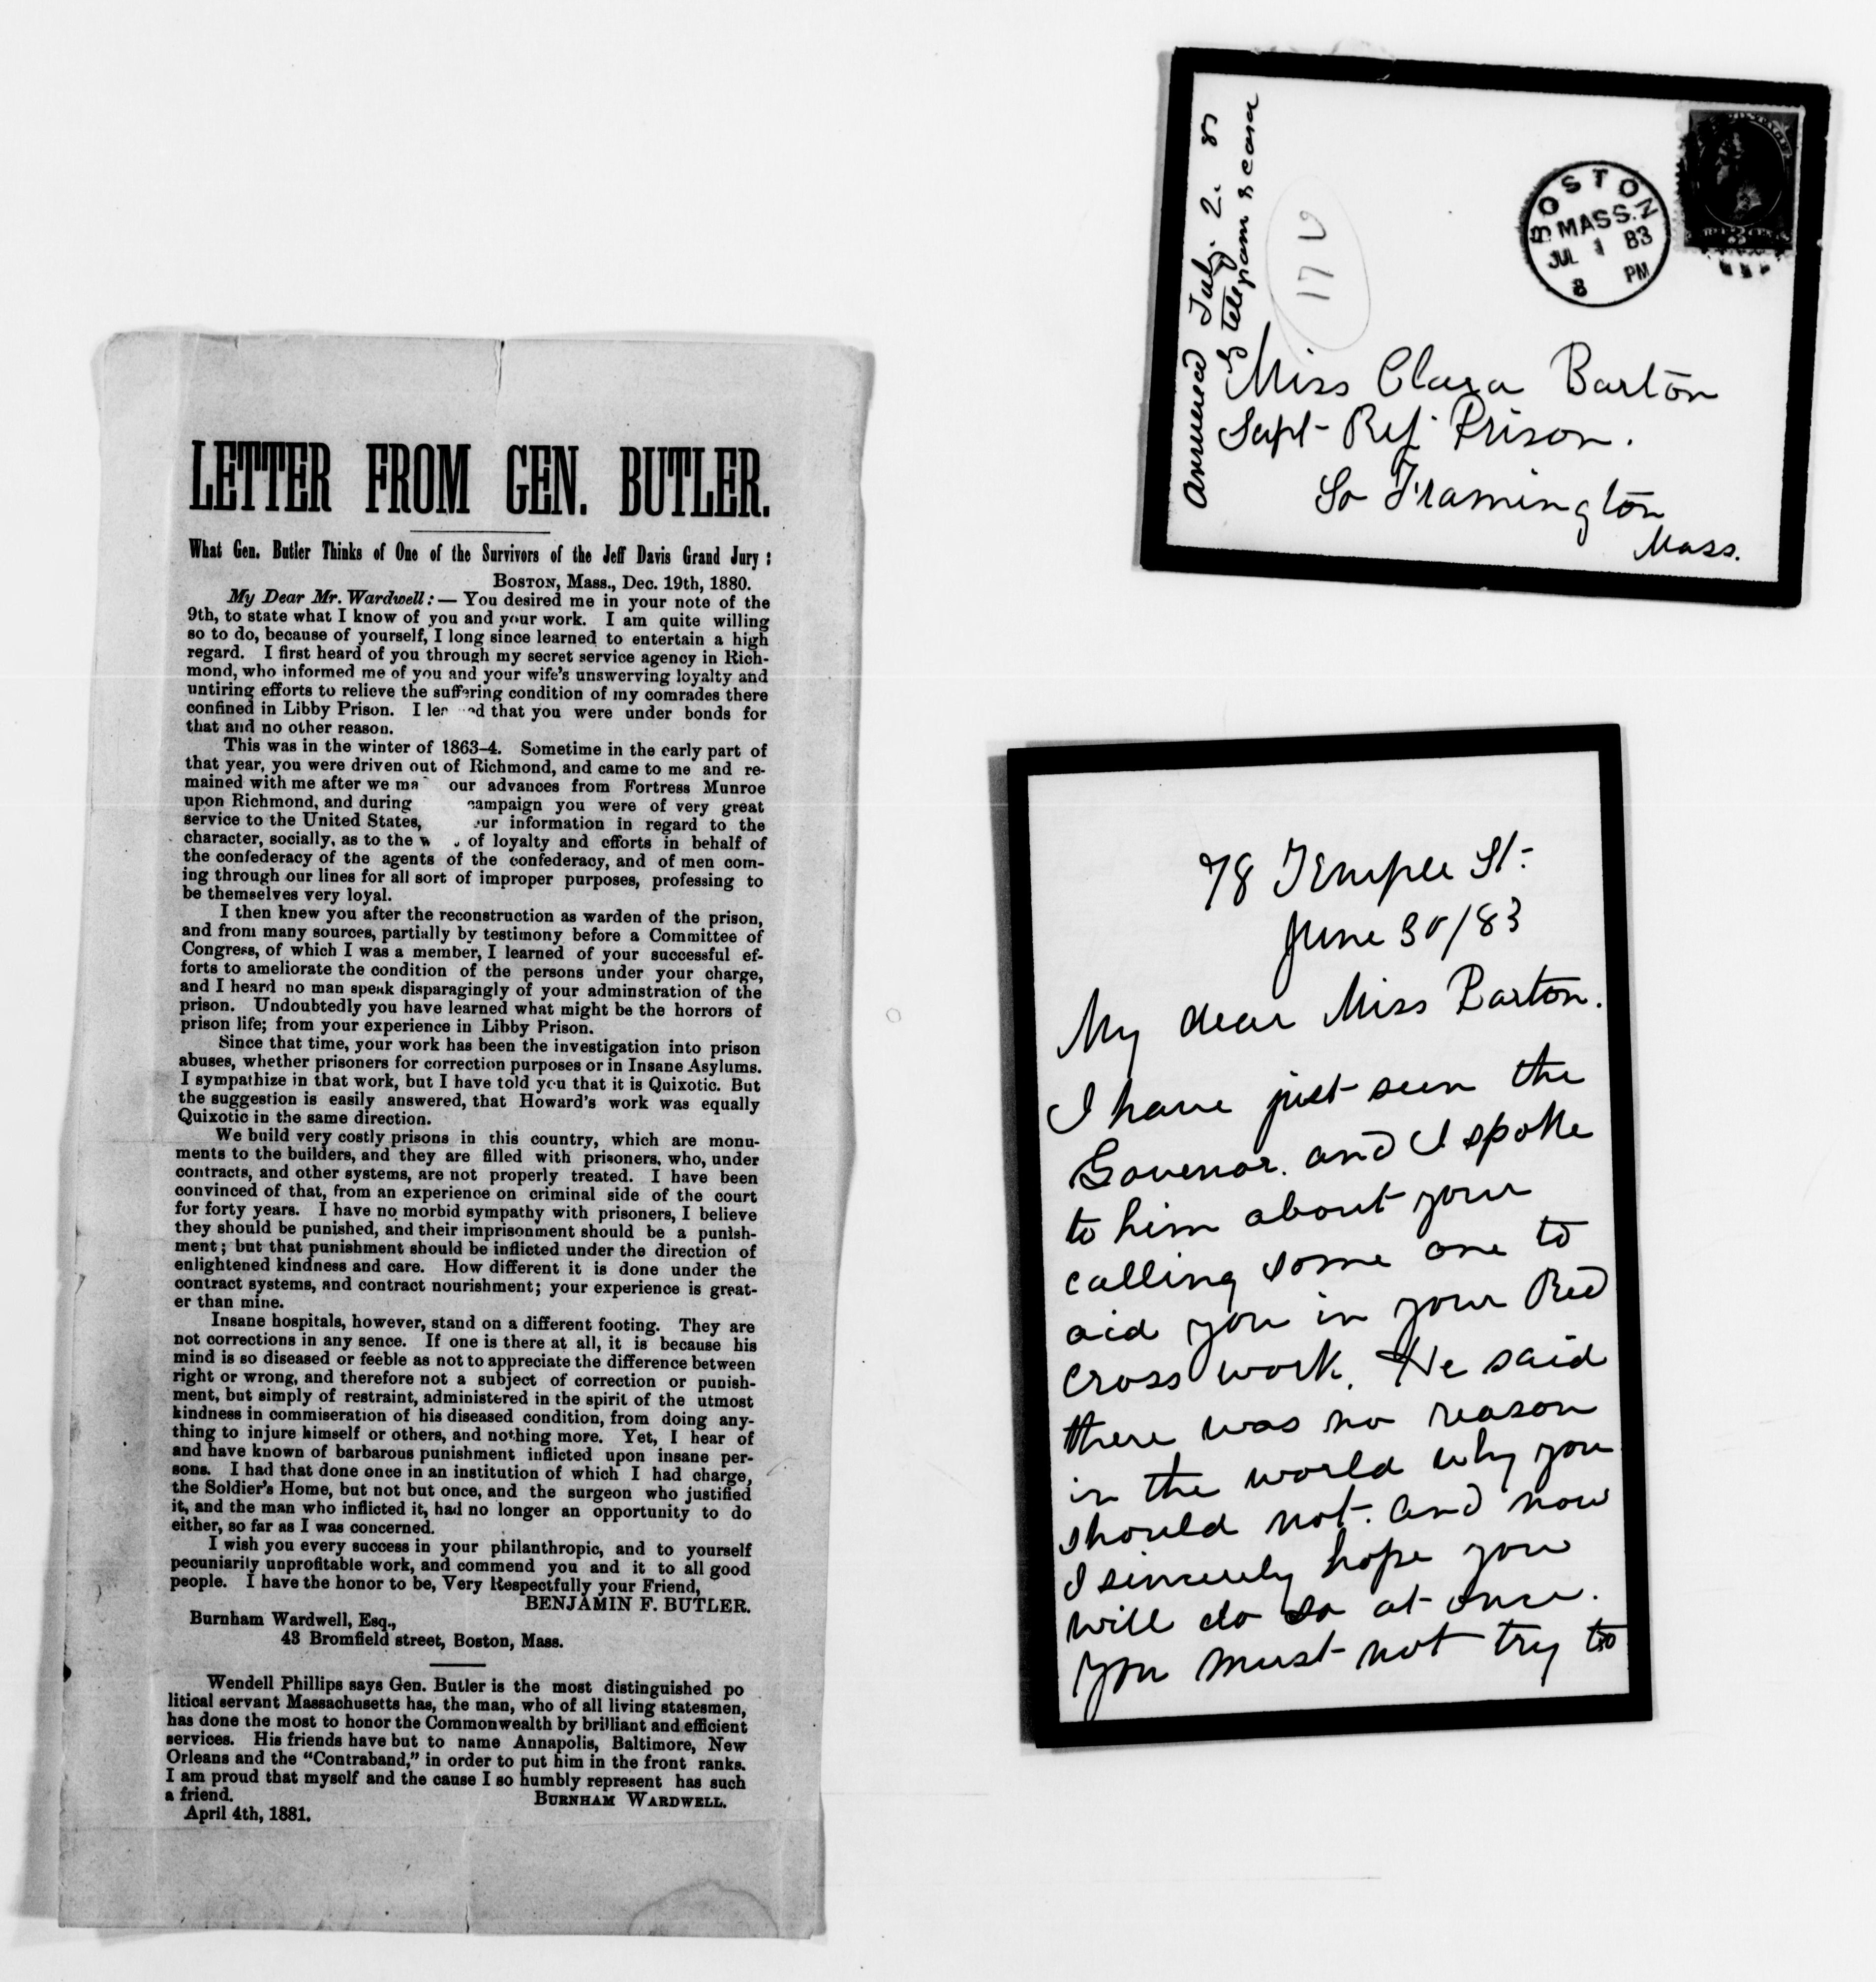 LETTER FROM GEN. BUTLER.
What Gen. Butler Thinks of One of the Survivors of the Jeff Davis Grand Jury :
BOSTON, Mass., Dec. 19th, 1880.
My Dear Mr. Wardwell: — You desired me in your note of the
9th, to state what I know of you and your work. I am quite willing
so to do, because of yourself, I long since learned to entertain a high
regard. I first heard of you through my secret service agency in Rich-
mond, who informed me of you and your wife's unswerving loyalty and
untiring efforts to relieve the suffering condition of my comrades there
confined in Libby Prison. I le ed that you were under bonds for
that and no other reason.
This was in the winter of 1863-4. Sometime in the early part of
that year, you were driven out of Richmond, and came to me and re-
mained with me after we ma our advances from Fortress Munroe
upon Richmond, and during campaign you were of very great
service to the United States, ur information in regard to the
character, socially, as to the w of loyalty and efforts in behalf of
the confederacy of the agents of the confederacy, and of men com-
ing through our lines for all sort of improper purposes, professing to
be themselves very loyal.
I then knew you after the reconstruction as warden of the prison,
and from many sources, partially by testimony before a Committee of
Congress, of which I was a member, I learned of your successful ef-
forts to ameliorate the condition of the persons under your charge,
and I heard no man speak disparagingly of your adminstration of the
prison. Undoubtedly you have learned what might be the horrors of
prison life; from your experience in Libby Prison.
Since that time, your work has been the investigation into prison
abuses, whether prisoners for correction purposes or in Insane Asylums.
I sympathize in that work, but I have told you that it is Quixotic. But
the suggestion is easily answered, that Howard's work was equally
Quixotic in the same direction.
We build very costly prisons in this country, which are monu-
ments to the builders, and they are filled with prisoners, who, under
contracts, and other systems, are not properly treated. I have been
convinced of that, from an experience on criminal side of the court
for forty years. I have no morbid sympathy with prisoners, I believe
they should be punished, and their imprisonment should be a punish-
ment; but that punishment should be inflicted under the direction of
enlightened kindness and care. How different it is done under the
contract systems, and contract nourishment; your experience is great-
er than mine.
Insane hospitals, however, stand on a different footing. They are
not corrections in any sence. If one is there at all, it is because his
mind is so diseased or feeble as not to appreciate the difference between
right or wrong, and therefore not a subject of correction or punish-
ment, but simply of restraint, administered in the spirit of the utmost
kindness in commiseration of his diseased condition, from doing any-
thing to injure himself or others, and nothing more. Yet, I hear of
and have known of barbarous punishment inflicted upon insane per-
sons. I had that done once in an institution of which I had charge,
the Soldier's Home, but not but once, and the surgeon who justified
it, and the man who inflicted it, had no longer an opportunity to do
either, so far as I was concerned.
I wish you every success in your philanthropic, and to yourself
pecuniarily unprofitable work, and commend you and it to all good
people. I have the honor to be, Very Respectfully your Friend,
BENJAMIN F. BUTLER.
Burnham Wardwell, Esq.,
43 Bromfield street, Boston, Mass.
Wendell Phillips says Gen. Butler is the most distinguished po
litical servant Massachusetts has, the man, who of all living statesmen,
has done the most to honor the Commonwealth by brilliant and efficient
services. His friends have but to name Annapolis, Baltimore, New
Orleans and the "Contraband," in order to put him in the front ranks.
I am proud that myself and the cause I so humbly represent has such
a friend. BURNHAM WARDWELL.
April 4th, 1881.
Answered July. 2. 83
17
BOSTON
MASS.
JUL 1 83
8 PM
Miss Clara Barton
Supt- Ref. Prison.
So Framington
Mass.
78 Temple St.
June 30/83
My dear Miss Barton.
I have just seen the
Govenor. and I spoke
to him about your
calling some one to
aid you in your Red
Cross work. He said
there was no reason
in the world why you
should not. and now
I sincerely hope you
will do so at once.
you must not try to